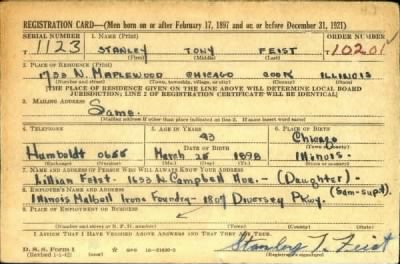 REGISTRATION CARD—(Men born on or after February 17, 1897 and on or before December 31, 1921)
SERIAL NUMBER 1. NAME (Print) ORDER NUMBER
T 1123 STANLEY TONY FEIST 10201
(First) (Middle) (Last)
2. PLACE OF RESIDENCE (Print)
1733 N. MAPLEWOOD CHICAGO COOK ILLINOIS
(Number and street) (Town, township, village, or city) (County) (State)
[THE PLACE OF RESIDENCE GIVEN ON THE LINE ABOVE WILL DETERMINE LOCAL BOARD
JURISDICTION; LINE 2 OF REGISTRATION CERTIFICATE WILL BE IDENTICAL]
3. MAILING ADDRESS
Same.
[Mailing address if other than place indicated on line 2. If same insert word same]
4. TELEPHONE 5. AGE IN YEARS 6. PLACE OF BIRTH
43 Chicago
DATE OF BIRTH
Humboldt March 25 1898 Illinois.
(Exchange) (Number) (Mo.) (Day) (Yr.) (State or country)
7. NAME AND ADDRESS OF PERSON WHO WILL ALWAYS KNOW YOUR ADDRESS
Lillian Feist - 1633 N. Campbell Ave. - (Daughter)
8. EMPLOYER'S NAME AND ADDRESS
Illinois Malball Irons Foundry - 1809 Diversey Pkwy.
9. PLACE OF EMPLOYMENT OR BUSINESS
(Number and street or R. F. D. number) (Town) (County) (State)
I AFFIRM THAT I HAVE VERIFIED ABOVE ANSWERS AND THAT THEY ARE TRUE.
D. S. S. Form 1
(Revised 1-1-42) Stanley T. Feist